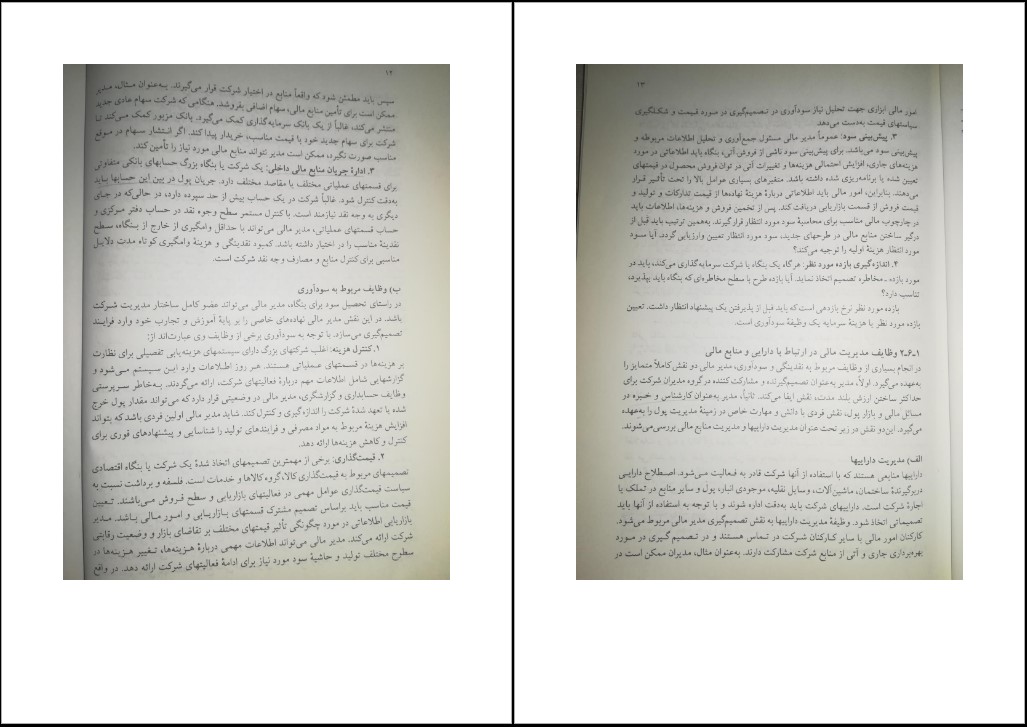 ۱۲
سپس باید مطمئن شود که واقعاً منابع در اختیار شرکت قرار می‌گیرند. به‌عنوان مثال، مدیر
ممکن است برای تأمین منابع مالی، سهام اضافی بفروشد. هنگامی که شرکت سهام عادی جدید
منتشر می‌کند، غالباً از یک بانک سرمایه‌گذاری کمک می‌گیرد. بانک مزبور کمک می‌کند تا
شرکت برای سهام جدید خود با قیمت مناسب، خریدار پیدا کند. اگر انتشار سهام در موقع
مناسب صورت نگیرد، ممکن است مدیر نتواند منابع مالی مورد نیاز را تأمین کند.
۳. ادارهٔ جریان منابع مالی داخلی: یک شرکت یا بنگاه بزرگ حسابهای بانکی متفاوتی
برای قسمتهای عملیاتی مختلف یا مقاصد مختلف دارد. جریان پول در بین این حسابها باید
به‌دقت کنترل شود. غالباً شرکت در یک حساب بیش از حد سپرده دارد، در حالی‌که در جای
دیگری به وجه نقد نیازمند است. با کنترل مستمر سطح وجوه نقد در حساب دفتر مرکزی و
حساب قسمتهای عملیاتی، مدیر مالی می‌تواند با حداقل وامگیری از خارج از بنگاه، سطح
نقدینهٔ مناسب را در اختیار داشته باشد. کمبود نقدینگی و هزینهٔ وامگیری کوتاه مدت دلایل
مناسبی برای کنترل منابع و مصارف وجه نقد شرکت است.
ب) وظایف مربوط به سودآوری
در راستای تحصیل سود برای بنگاه، مدیر مالی می‌تواند عضو کامل ساختار مدیریت شرکت
باشد. در این نقش مدیر مالی نهاده‌های خاصی را بر پایهٔ آموزش و تجارب خود وارد فرایند
تصمیم‌گیری می‌سازد. با توجه به سودآوری برخی از وظایف وی عبارت‌اند از:
۱. کنترل هزینه: اغلب شرکتهای بزرگ دارای سیستمهای هزینه‌یابی تفصیلی برای نظارت
بر هزینه‌ها در قسمتهای عملیاتی هستند. هر روز اطلاعات وارد این سیستم می‌شود و
گزارشهایی شامل اطلاعات مهم دربارهٔ فعالیتهای شرکت، ارائه می‌گردند. به‌خاطر سرپرستی
وظایف حسابداری و گزارشگری، مدیر مالی در وضعیتی قرار دارد که می‌تواند مقدار پول خرج
شده یا تعهد شدهٔ شرکت را اندازه‌گیری و کنترل کند. شاید مدیر مالی اولین فردی باشد که بتواند
افزایش هزینهٔ مربوط به مواد مصرفی و فرایندهای تولید را شناسایی و پیشنهادهای فوری برای
کنترل و کاهش هزینه‌ها ارائه دهد.
۲. قیمت‌گذاری: برخی از مهمترین تصمیمهای اتخاذ شدهٔ یک شرکت یا بنگاه اقتصادی
تصمیمهای مربوط به قیمت‌گذاری کالا، گروه کالاها و خدمات است. فلسفه و برداشت نسبت به
سیاست قیمت‌گذاری عوامل مهمی در فعالیتهای بازاریابی و سطح فروش می‌باشند. تعیین
قیمت مناسب باید براساس تصمیم مشترک قسمتهای بازاریابی و امور مالی باشد. مدیر
بازاریابی اطلاعاتی در مورد چگونگی تأثیر قیمتهای مختلف بر تقاضای بازار و وضعیت رقابتی
شرکت ارائه می‌کند. مدیر مالی می‌تواند اطلاعات مهمی دربارهٔ هزینه‌ها، تغییر هزینه‌ها در
سطوح مختلف تولید و حاشیهٔ سود مورد نیاز برای ادامهٔ فعالیتهای شرکت ارائه دهد. در واقع
۱۳
امور مالی ابزاری جهت تحلیل نیاز سودآوری در تصمیم‌گیری در مورد قیمت و شکلگیری
سیاستهای قیمت به‌دست می‌دهد.
۳. پیش‌بینی سود: عموماً مدیر مالی مسئول جمع‌آوری و تحلیل اطلاعات مربوطه و
پیش‌بینی سود می‌باشد. برای پیش‌بینی سود ناشی از فروش آتی، بنگاه باید اطلاعاتی در مورد
هزینه‌های جاری، افزایش احتمالی هزینه‌ها و تغییرات آتی در توان فروش محصول در قیمتهای
تعیین شده یا برنامه‌ریزی شده داشته باشد. متغیرهای بسیاری عوامل بالا را تحت تأثیر قرار
می‌دهند. بنابراین، امور مالی باید اطلاعاتی دربارهٔ هزینهٔ نهاده‌ها از قسمت تدارکات و تولید و
قیمت فروش از قسمت بازاریابی دریافت کند. پس از تخمین فروش و هزینه‌ها، اطلاعات باید
در چارچوب مالی مناسب برای محاسبهٔ سود مورد انتظار قرار گیرند. به‌همین ترتیب باید قبل از
درگیر ساختن منابع مالی در طرحهای جدید، سود مورد انتظار تعیین وارزیابی گردد. آیا سود
مورد انتظار هزینهٔ اولیه را توجیه می‌کند؟
۴. اندازه‌گیری بازده مورد نظر: هرگاه یک بنگاه یا شرکت سرمایه‌گذاری می‌کند، باید در
مورد بازده ـ مخاطره تصمیم اتخاذ نماید. آیا بازده طرح با سطح مخاطره‌ای که بنگاه باید بپذیرد،
تناسب دارد؟
بازده مورد نظر نرخ بازدهی است که باید قبل از پذیرفتن یک پیشنهاد انتظار داشت. تعیین
بازده مورد نظر یا هزینهٔ سرمایه یک وظیفهٔ سودآوری است.
۱ـ۶ـ۲ وظایف مدیریت مالی در ارتباط با دارایی و منابع مالی
در انجام بسیاری از وظایف مربوط به نقدینگی و سودآوری، مدیر مالی دو نقش کاملاً متمایز را
به‌عهده می‌گیرد. اولاً، مدیر به‌عنوان تصمیم‌گیرنده و مشارکت کننده در گروه مدیران شرکت برای
حداکثر ساختن ارزش بلند مدت، نقش ایفا می‌کند. ثانیاً، مدیر به‌عنوان کارشناس و خبره در
مسائل مالی و بازار پول، نقش فردی با دانش و مهارت خاص در زمینهٔ مدیریت پول را به‌عهده
می‌گیرد. این‌دو نقش در زیر تحت عنوان مدیریت داراییها و مدیریت منابع مالی بررسی می‌شوند.
الف) مدیریت داراییها
داراییها منابعی هستند که با استفاده از آنها شرکت قادر به فعالیت می‌شود. اصطلاح دارایی
دربرگیرندهٔ ساختمان، ماشین‌آلات، وسایل نقلیه، موجودی انبار، پول و سایر منابع در تملک یا
اجارهٔ شرکت است. داراییهای شرکت باید به‌دقت اداره شوند و با توجه به استفاده از آنها باید
تصمیماتی اتخاذ شود. وظیفهٔ مدیریت داراییها به نقش تصمیم‌گیری مدیر مالی مربوط می‌شود.
کارکنان امور مالی با سایر کارکنان شرکت در تماس هستند و در تصمیم گیری در مورد
بهره‌برداری جاری و آتی از منابع شرکت مشارکت دارند. به‌عنوان مثال، مدیران ممکن است در